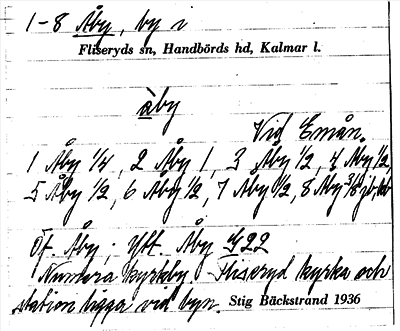 1-8 Åby, by i
Fliseryds sn, Handbörds hd, Kalmar l.
àby
Vid Emån.
1 Åby 1/4, 2 Åby 1, 3 Åby 1/2, 4 Åby 1/2
5 Åby 1/2, 6 Åby 1/2, 7 Åby 1/2, 8 Åby 3/8
Åby; Åby G22
Numera kyrkby Fliseryd kyrka och
station ligga vid byn. Stig Bäckstrand 1936